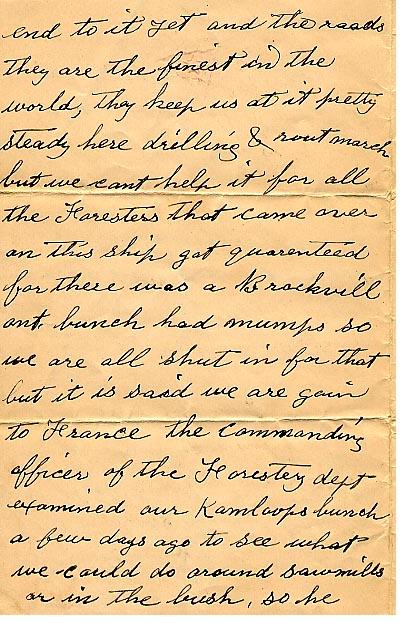 end to it yet and the roads
they are the finest in the
world, they keep us at it pretty
steady here drilling & rout march
but we cant help it for all
the Foresters that came over
on this ship got quarenteed
for there was a Brockvill
ont. bunch had mumps so
we are all shut in for that
but it is said we are goin
to France the commanding
officer of the Forestery dept
examined our Kamloops bunch
a few days ago to see what
we could do around sawmills
or in the bush, so he